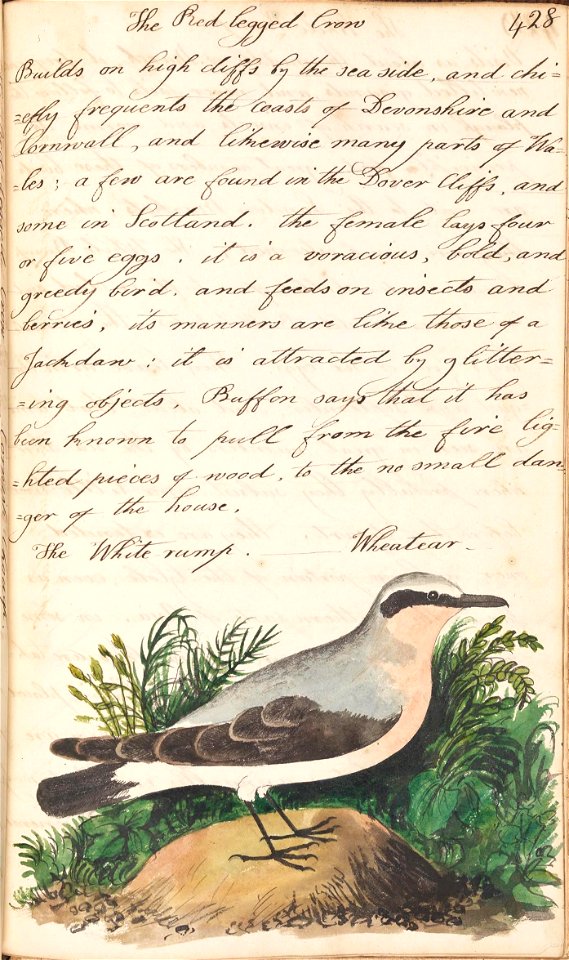 The Red legged Crow
428
Builds on high cliffs by the sea side, and chi=
=efly frequents the coasts of Devonshire and
Cornwall, and likewise many parts of Wa=
=les; a few are found in the Dover Cliffs, and
some in Scotland. the female lays four
or five eggs. it is a voracious, bold, and
greedy bird. and feeds on insects and
berries, its manners are like those of a
Jackdaw: it is attracted by glitter=
=ing objects. Buffon says that it has
been known to pull from the fire lig=
=hted pieces of wood, to the no small dan=
=ger of the house.
The White rump. — Wheatear —